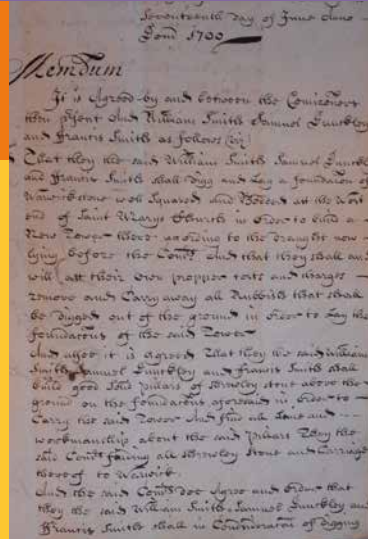 Seventeenth Day of June Anno
Dom 1700
Memdum
It is Agreed by and between the Comiconers
then psent And William Smith Samuel Dunckley
and Francis Smith as follows (viz)
That they the said William Smith Samuel Dunckley
and Francis Smith shall Digg and Lay a foundacon of
Warwick stone well Squared and Bedded att the West
end of Saint Marys Church in Order to build a
New Tower there according to the draught now
lying before the Comrs And that they shall and
will att their Own propper costs and charges
remove and Carry away all Rubbish that shall
be Digged out of the ground in Order to Lay the
foundacons of the said Tower
And alsoe it is agreed That they the said William
Smith Samuel Dunckley and Francis Smith shall
build good Solid pillars of Shrewley stone above the
ground on the foundacons aforesaid in Order to
Carry the said Tower And find all Lime and
workmanshipp about the said pillars They the
said Comrs finding all Shrewley Stone and Carriage
thereof to Warwick
And the said Comrs doe Agree and Order that
they the said William Smith, Samuel Dunckley and
Francis Smith shall in Consideracon of digging